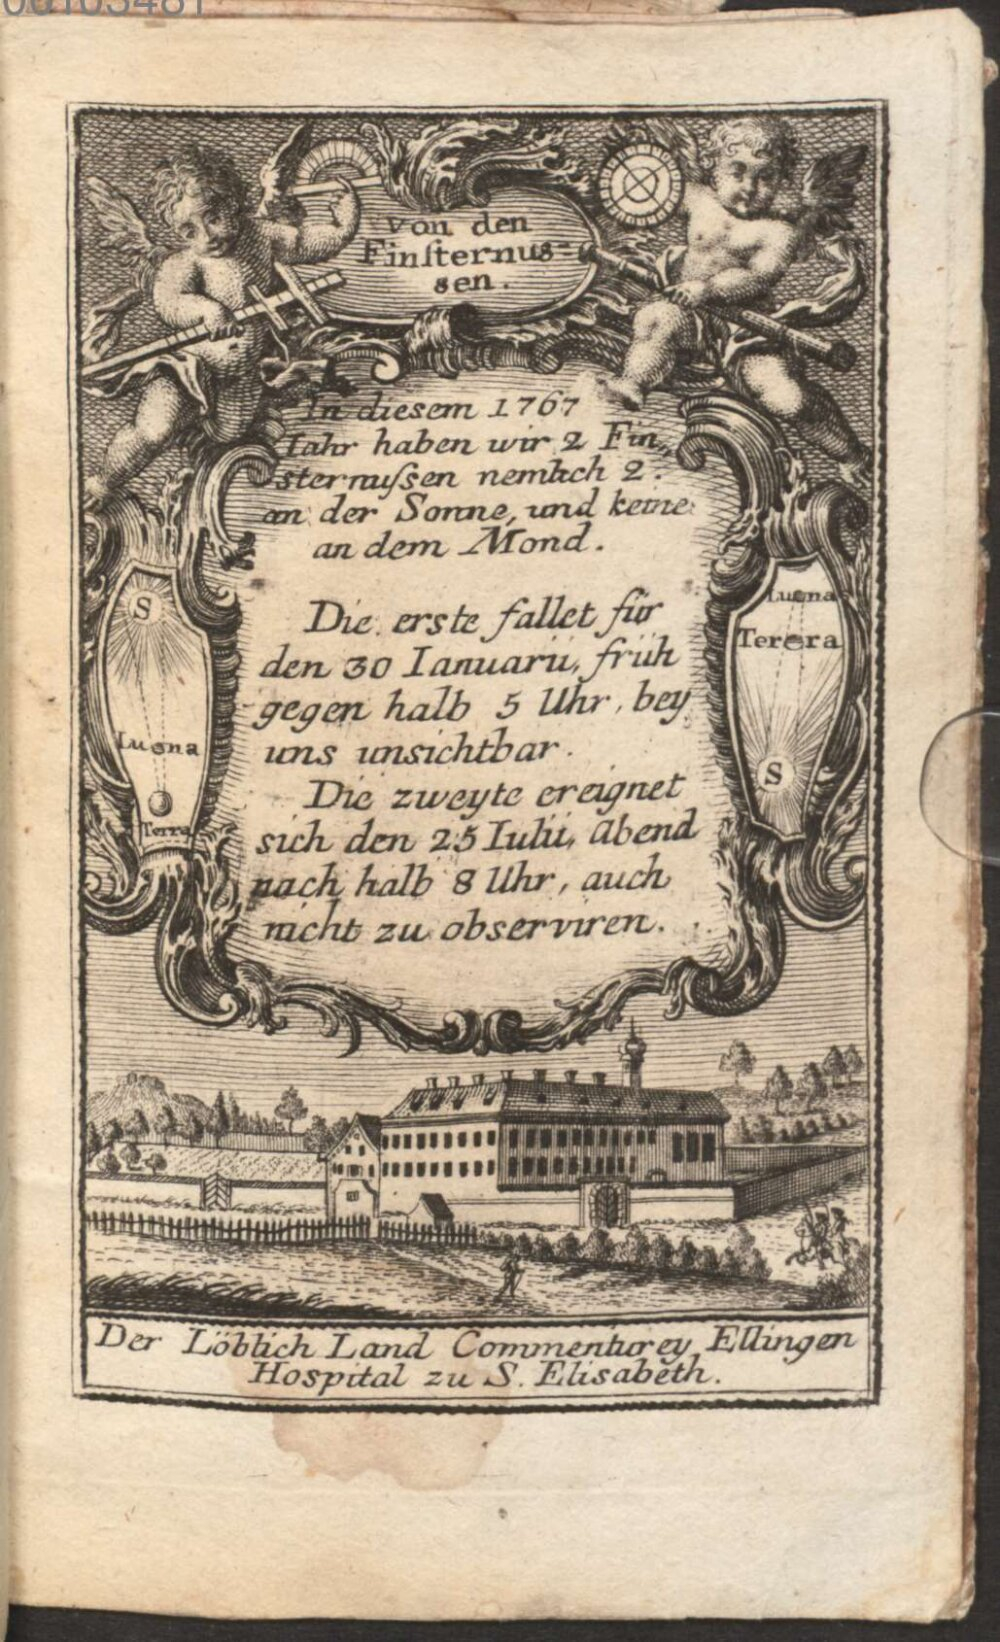 00103481
von den
Finſternus=
sen.
In diesem 1767
Iahr haben wir 2 Fin,,
sternuſsen nemlich 2.
an der Sonne, und keine
an dem Mond.
Die erste fallet für
den 30 Ianuarii, früh
gegen halb 5 Uhr, bey
uns unsichtbar.
Die zweyte ereignet
sich den 25 Iulii, Abend
nach halb 8 Uhr, auch
nicht zu observiren.
S
Luna
Terra
Luna
Terra
S
Der Löblich Land Commenturey Ellingen
Hospital zu S. Elisabeth.